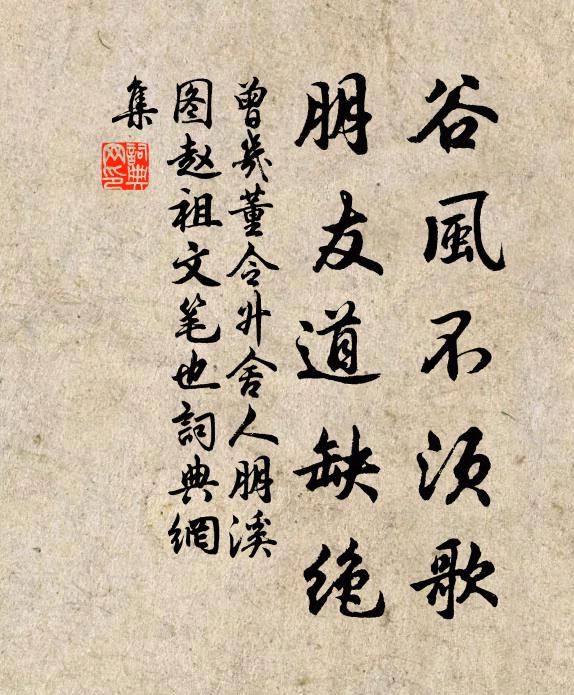 谷風不须歌
朋友道缺绝
曾幾董令升舍人朋溪
图赵祖文笔也詞典網
集
詞典
网印